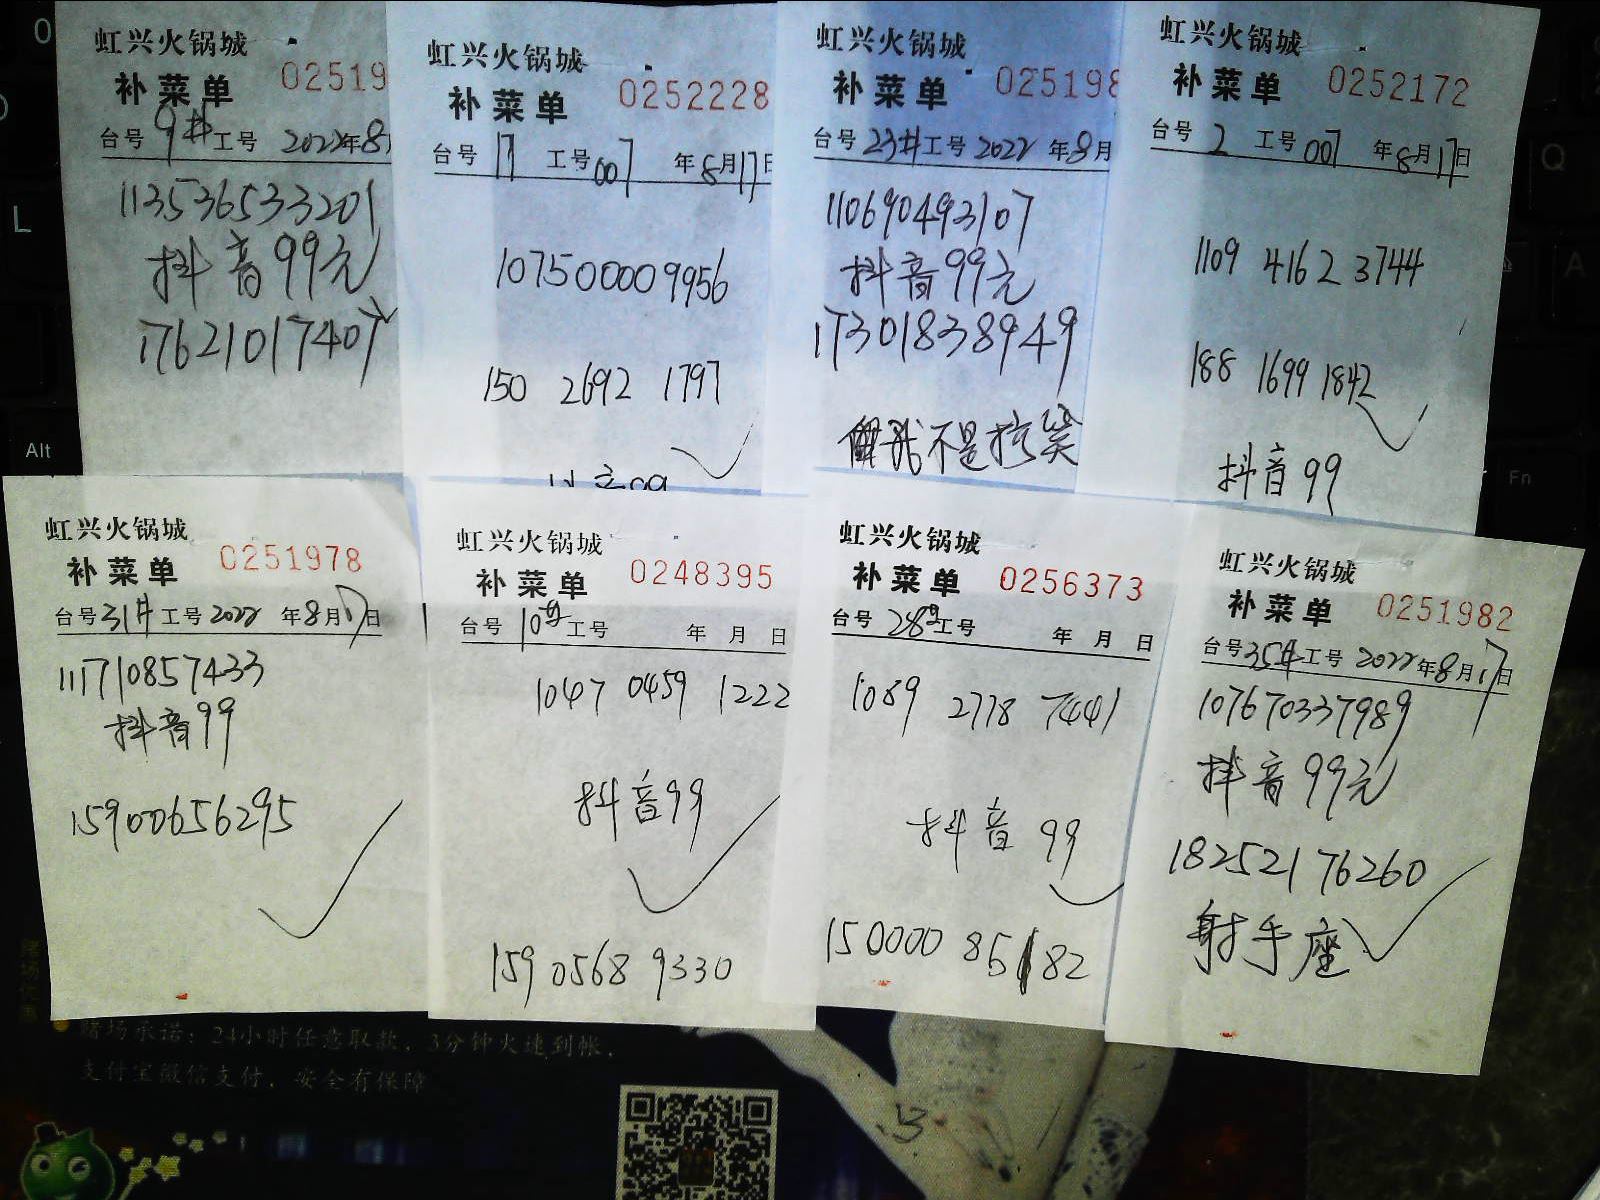 虹兴火锅城
补菜单 02519
台号 9# 工号 2022年8月
113536533201
抖音99元
17621017407
虹兴火锅城
补菜单 0252228
台号 17 工号 007 年8月17日
107500009956
150 2692 1797
虹兴火锅城
补菜单 025198
台号 23# 工号 2022 年8月
110690493107
抖音99元
17301838949
我不是搞笑
虹兴火锅城
补菜单 0252172
台号 2 工号 007 年8月17日
1109 4162 3744
188 1699 1842
抖音99
虹兴火锅城
补菜单 0251978
台号 31# 工号 2022 年8月17日
111710857433
抖音99
15900656295
虹兴火锅城
补菜单 0248395
台号 10号 工号 年 月 日
1047 0459 1222
抖音99
159 0568 9330
虹兴火锅城
补菜单 0256373
台号 28号 工号 年 月 日
1089 2778 7441
抖音 99
150000 85182
虹兴火锅城
补菜单 0251982
台号 35# 工号 2022年8月17日
107670337989
抖音99元
18252176260
射手座
赌场承诺：24小时任意取款，3分钟火速到帐，
支付宝微信支付，安全有保障
Alt
L
Q
A
Fn